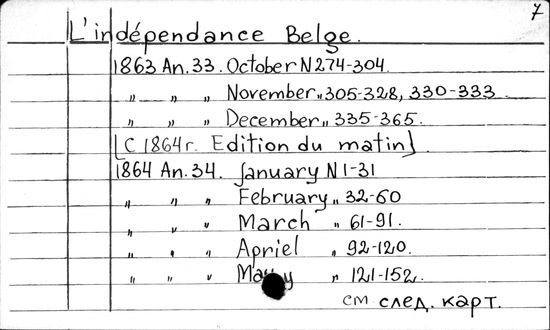 7
L'indépendance Belge.
1863 An. 33. October N 274-304.
" " " November " 305-328, 330-333
" " " December " 335-365.
[С 1864 г. Edition du matin]
1864 An. 34. January N 1-31
" " " February " 32-60
" " " March " 61-91.
" " " Apriel " 92-120.
" " " May " 121-152.
см след. карт.